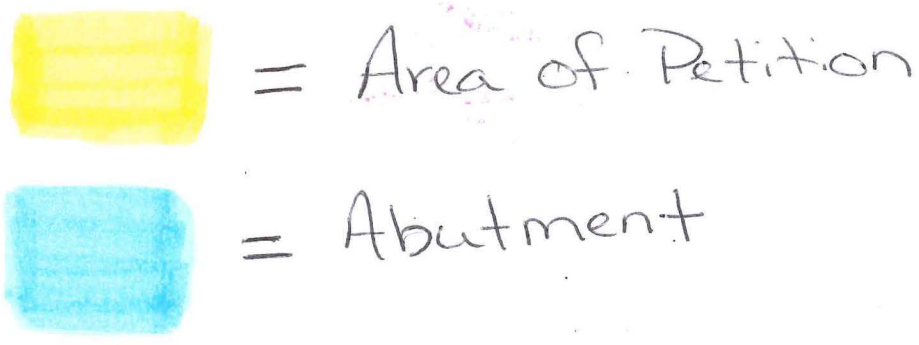 = Area of Petition
= Abutment